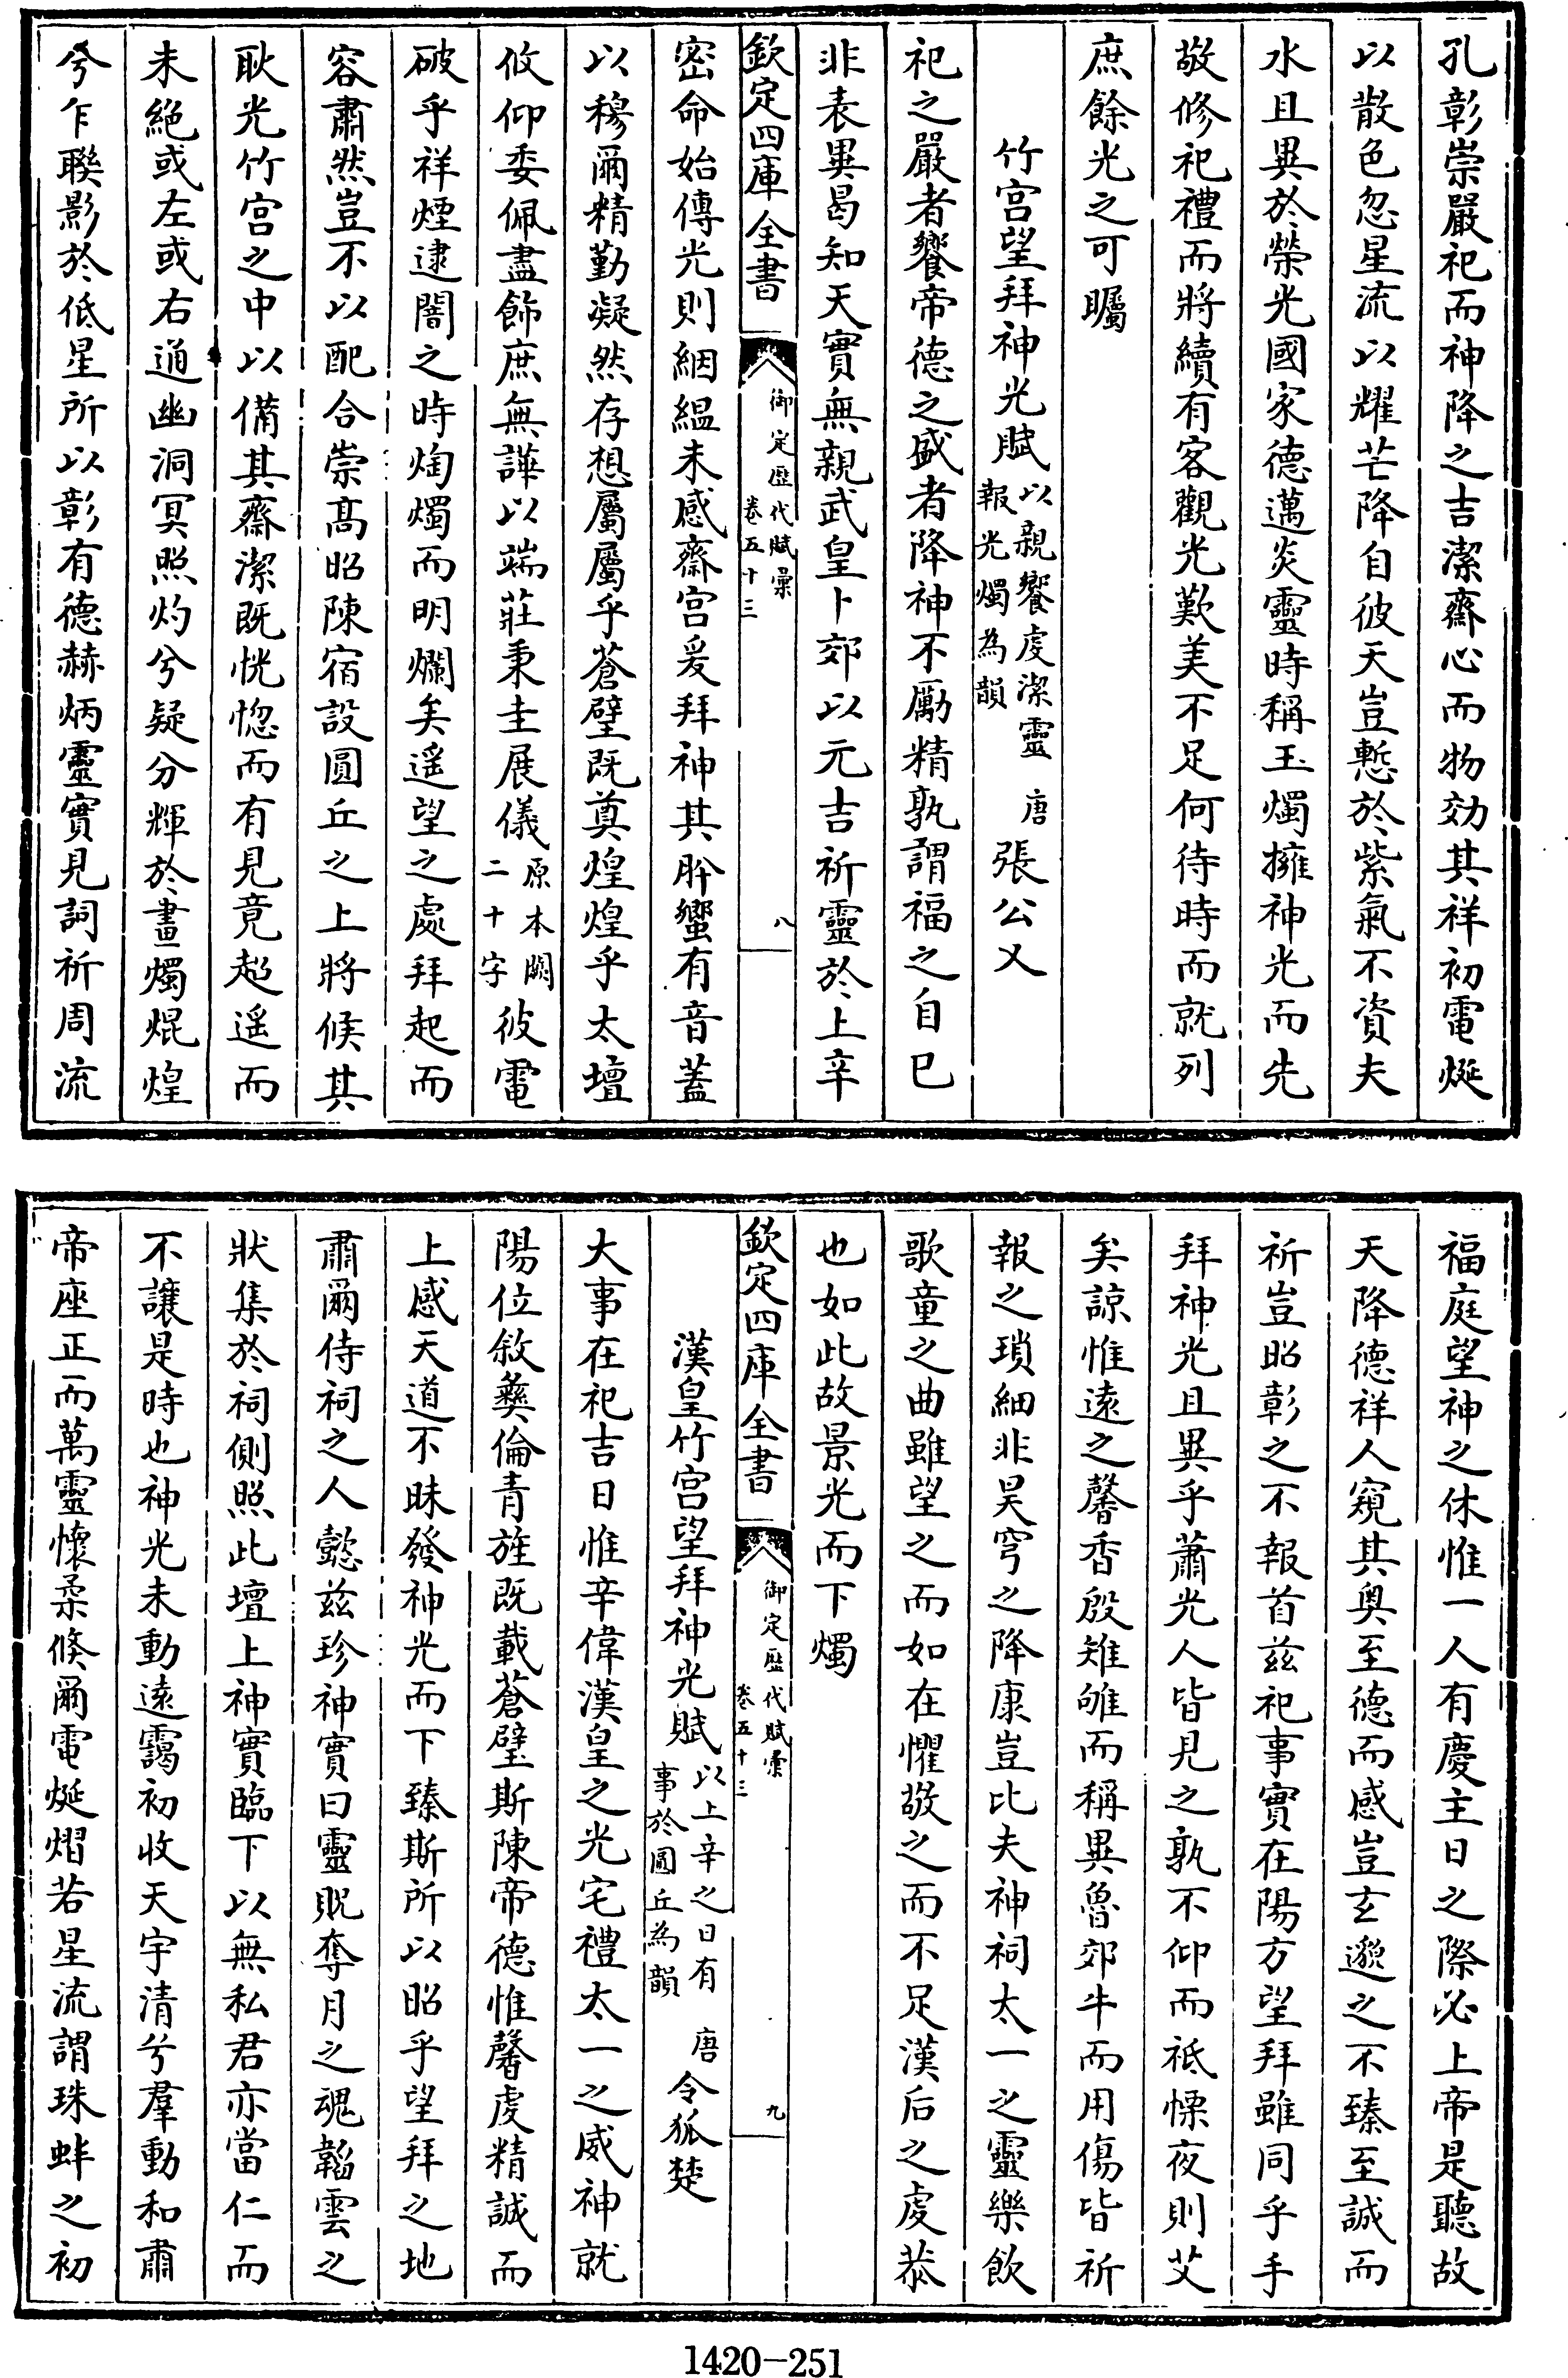 孔彰崇嚴祀而神降之吉潔齋心而物効其祥初電烻
以散色忽星流以耀芒降自彼天豈慙於紫氣不資夫
水且異於榮光國家德邁炎靈時稱玉燭擁神光而先
敬修祀禮而將續有客觀光歎美不足何待時而就列
庶餘光之可矚
竹宫望拜神光賦以親饗䖍潔靈報光燭為韻 唐張公乂
祀之嚴者饗帝德之盛者降神不勵精孰謂福之自已
非表異曷知天實無親武皇卜郊以元吉祈靈於上辛
欽定四庫全書 御定歴代賦彚 卷五十三 八
密命始傳光則絪緼未感齋宫爰拜神其肸蠁有音蓋
以穆爾精勤凝然存想屬屬乎蒼璧既奠煌煌乎太壇
攸仰委佩盡飾庶無譁以端莊秉圭展儀原本闕二十字彼電
破乎祥煙逮闇之時焴燭而明爛矣遥望之處拜起而
容肅然豈不以配合崇髙昭陳宿設圓丘之上將候其
耿光竹宫之中以備其齋潔既恍惚而有見竟超遥而
未絶或左或右通幽洞冥照灼兮疑分輝於畫燭焜煌
兮乍聯影於低星所以彰有德赫炳靈實見詞祈周流
福庭望神之休惟一人有慶主日之際必上帝是聽故
天降德祥人窺其奥至德而感豈玄邈之不臻至誠而
祈豈昭彰之不報首兹祀事實在陽方望拜雖同乎手
拜神光且異乎蕭光人皆見之孰不仰而祗慄夜則艾
矣諒惟遠之馨香殷雉雊而稱異魯郊牛而用傷皆祈
報之瑣細非昊穹之降康豈比夫神祠太一之靈樂飲
歌童之曲雖望之而如在懼敬之而不足漢后之䖍恭
也如此故景光而下燭
欽定四庫全書 御定歴代賦彚 卷五十三 九
漢皇竹宫望拜神光賦以上辛之日有事於圓丘為韻 唐令狐楚
大事在祀吉日惟辛偉漢皇之光宅禮太一之威神就
陽位敘彜倫青旌既載蒼璧斯陳帝德惟馨䖍精誠而
上感天道不昧發神光而下臻斯所以昭乎望拜之地
肅爾侍祠之人懿兹珍神實曰靈貺奪月之魂韜雲之
狀集於祠側照此壇上神實臨下以無私君亦當仁而
不讓是時也神光未動遠靄初收天宇清兮羣動和肅
帝座正而萬靈懷柔倐爾電烻熠若星流謂珠蚌之初
1420-251